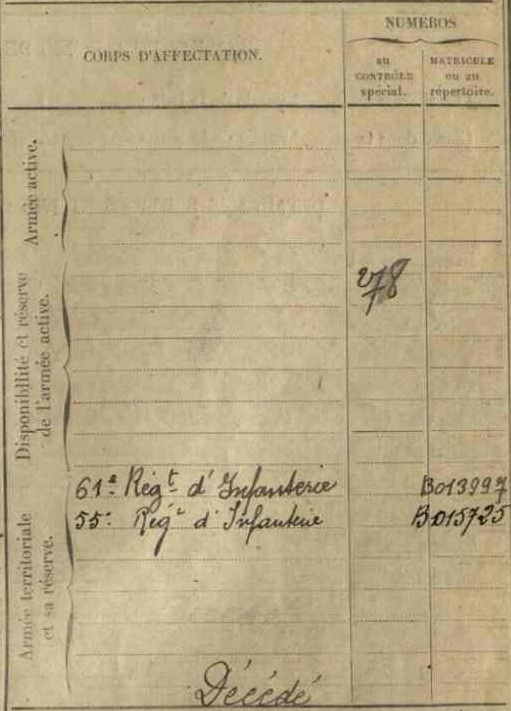 NUMÉROS
CORPS D'AFFECTATION.
au
CONTRÔLE
spécial.
MATRICULE
ou au
répertoire.
Armée active.
Disponibilité et réserve
de l'armée active.
278
Armée territoriale
et sa réserve.
61e Régt d'Infanterie B013997
55e Régt d'Infanterie B015725
Décédé